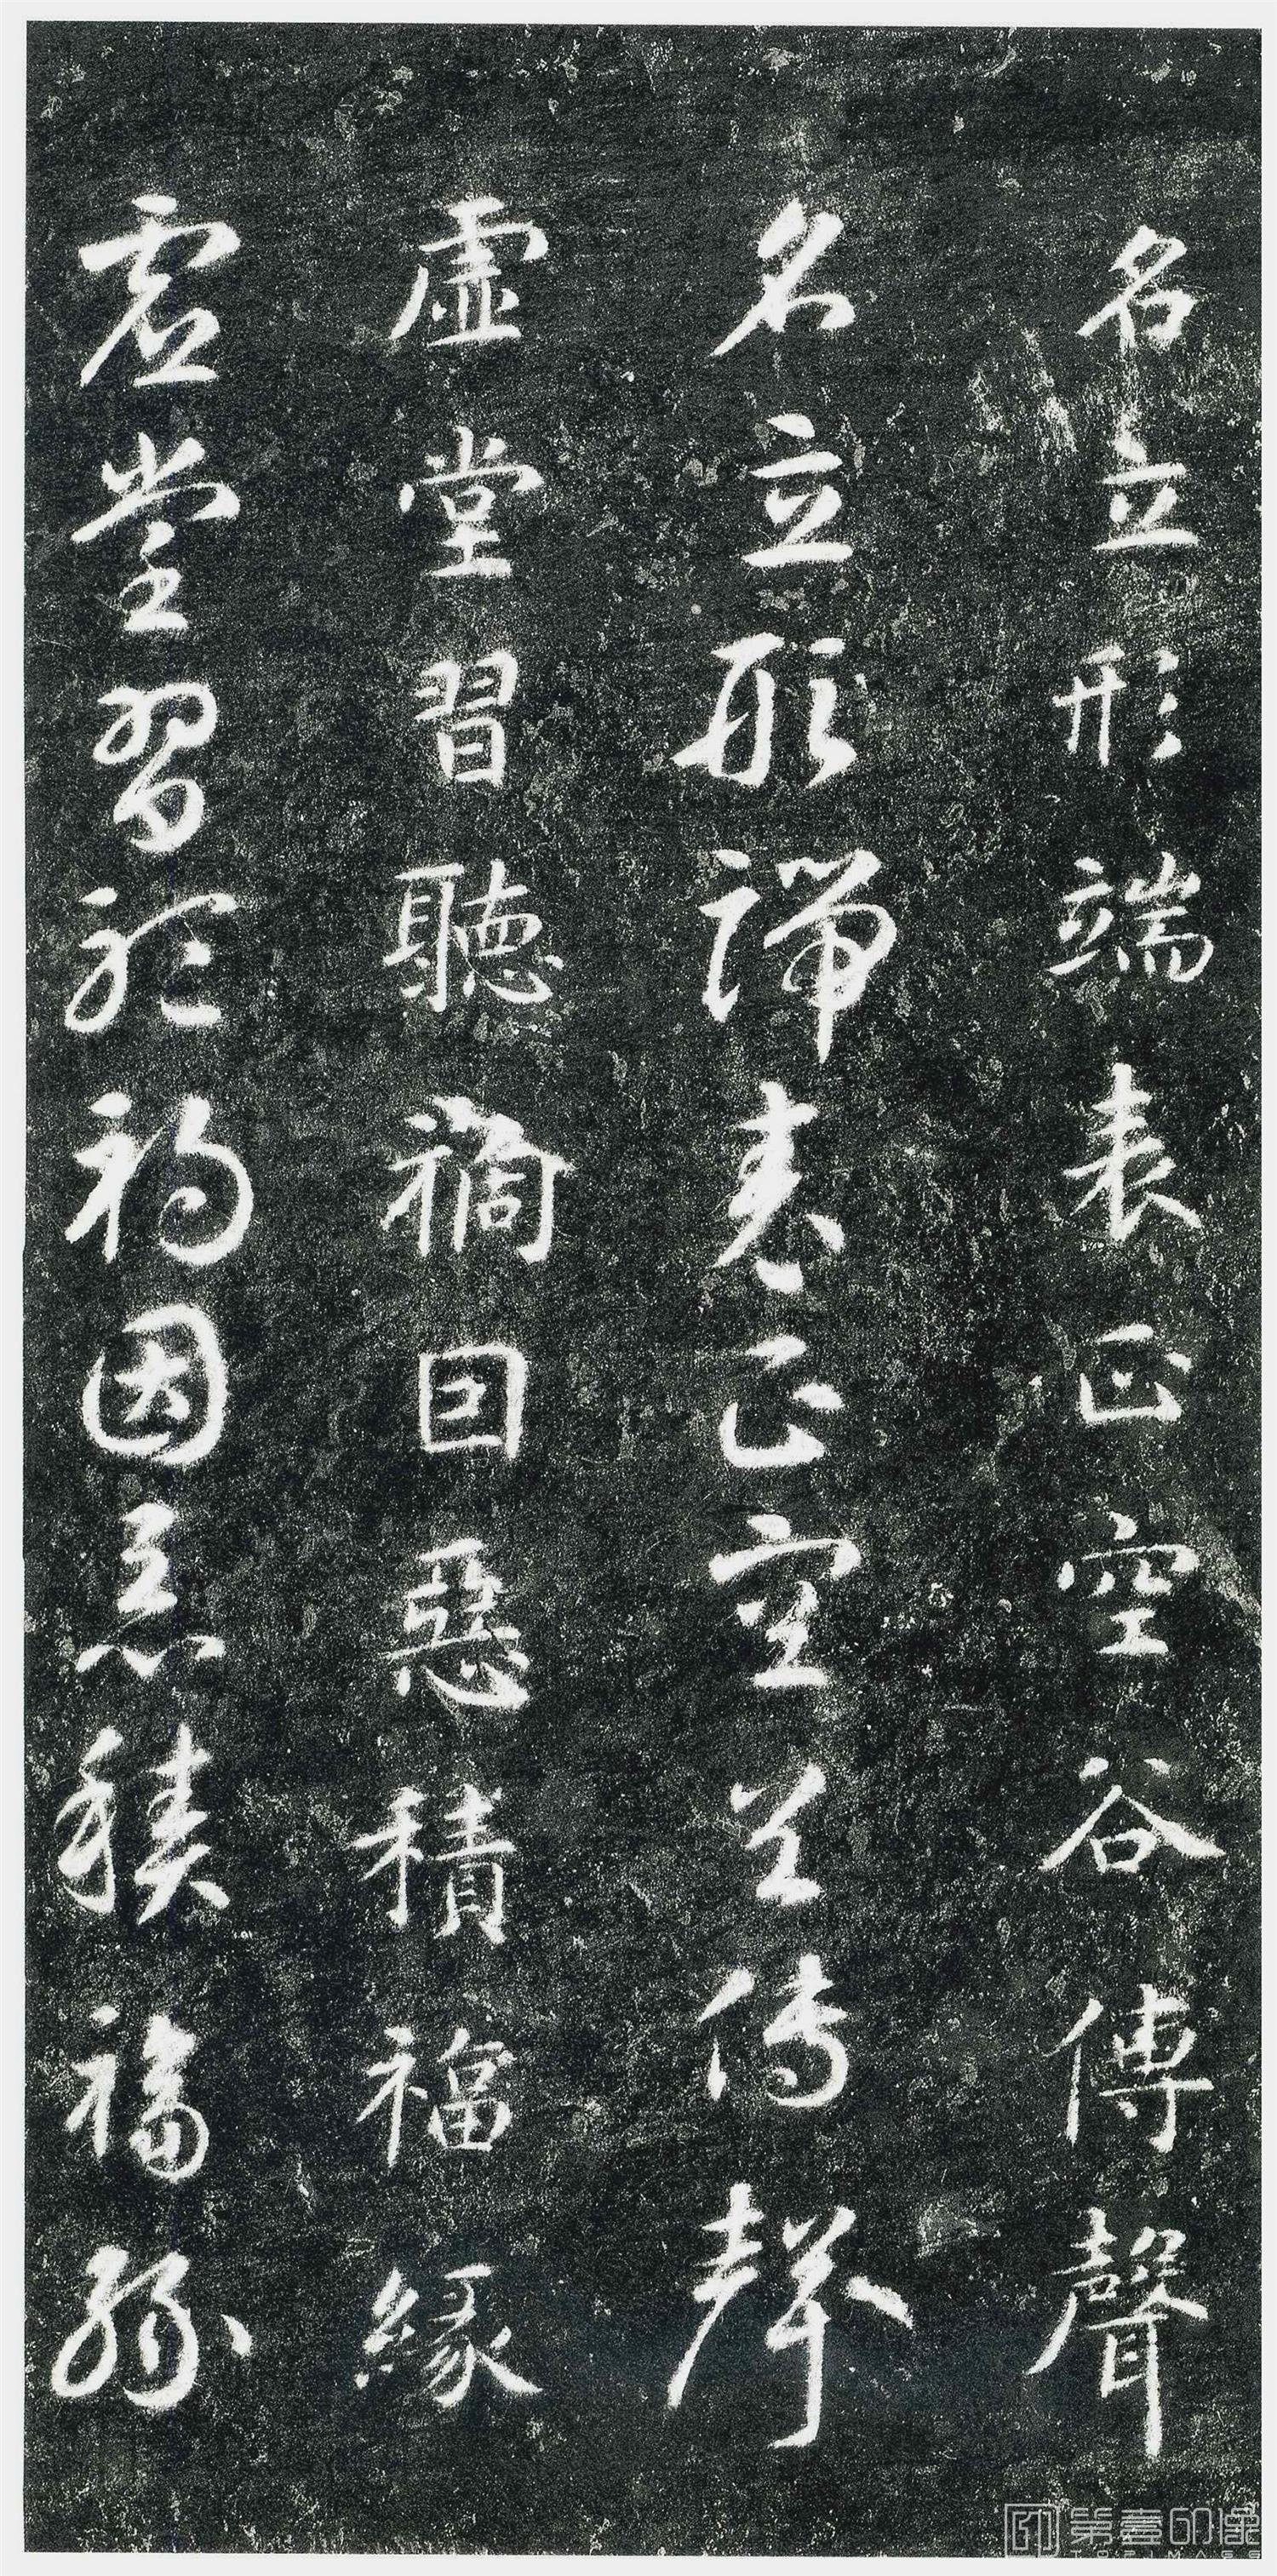 名立形端表正空谷傳聲
名立形端表正空谷傳聲
虛堂習聽禍因惡積福緣
虛堂習聽禍因惡積福緣
第壹印像
TOPIMAGE